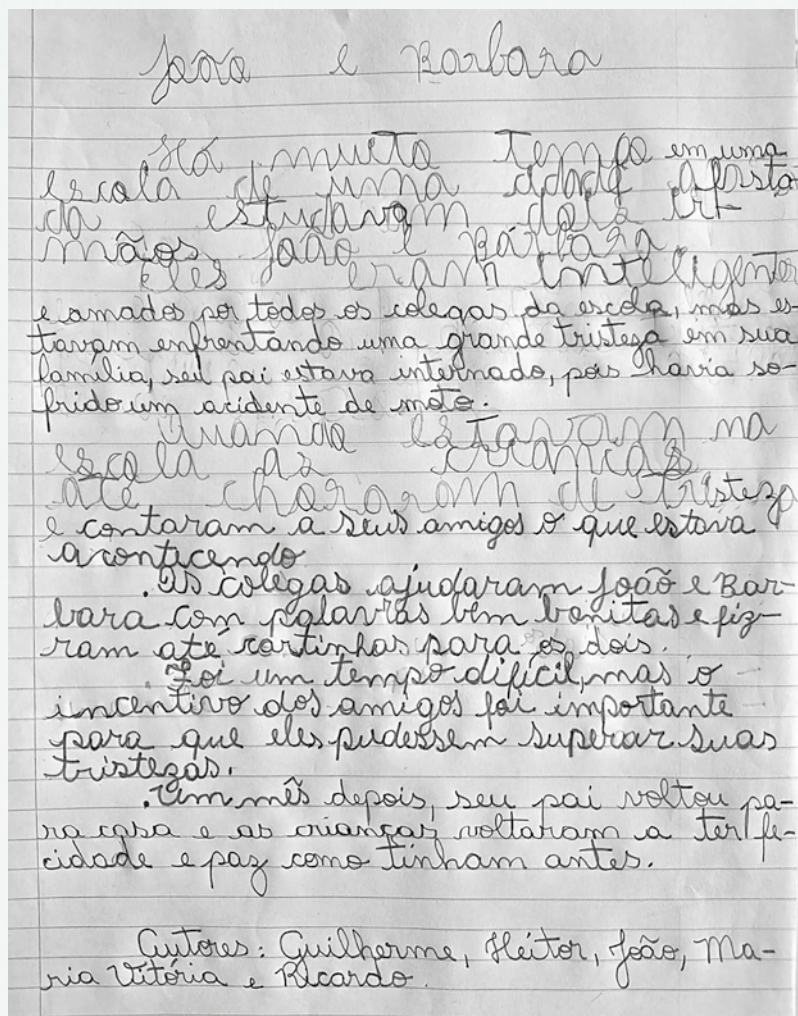 João e Barbara
Há muito tempo em uma
escola de uma cidade afasta-
da estudavam dois ir-
mãos João e Bárbara.
Eles eram inteligentes
e amados por todos os colegas da escola, mas es-
tavam enfrentando uma grande tristeza em sua
família, seu pai estava internado, pois havia so-
frido um acidente de moto.
Quando estavam na
escola as crianças
até choraram de tristeza
e contaram a seus amigos o que estava
acontecendo
.Os colegas ajudaram João e Bar-
bara com palavras bem bonitas e fize-
ram até cartinhas para os dois.
.Foi um tempo difícil, mas o
incentivo dos amigos foi importante
para que eles pudessem superar suas
tristezas.
.Um mês depois, seu pai voltou pa-
ra casa e as crianças voltaram a ter fe-
cidade e paz como tinham antes.
Autores: Guilherme, Heitor, João, Ma-
ria Vitória e Ricardo.